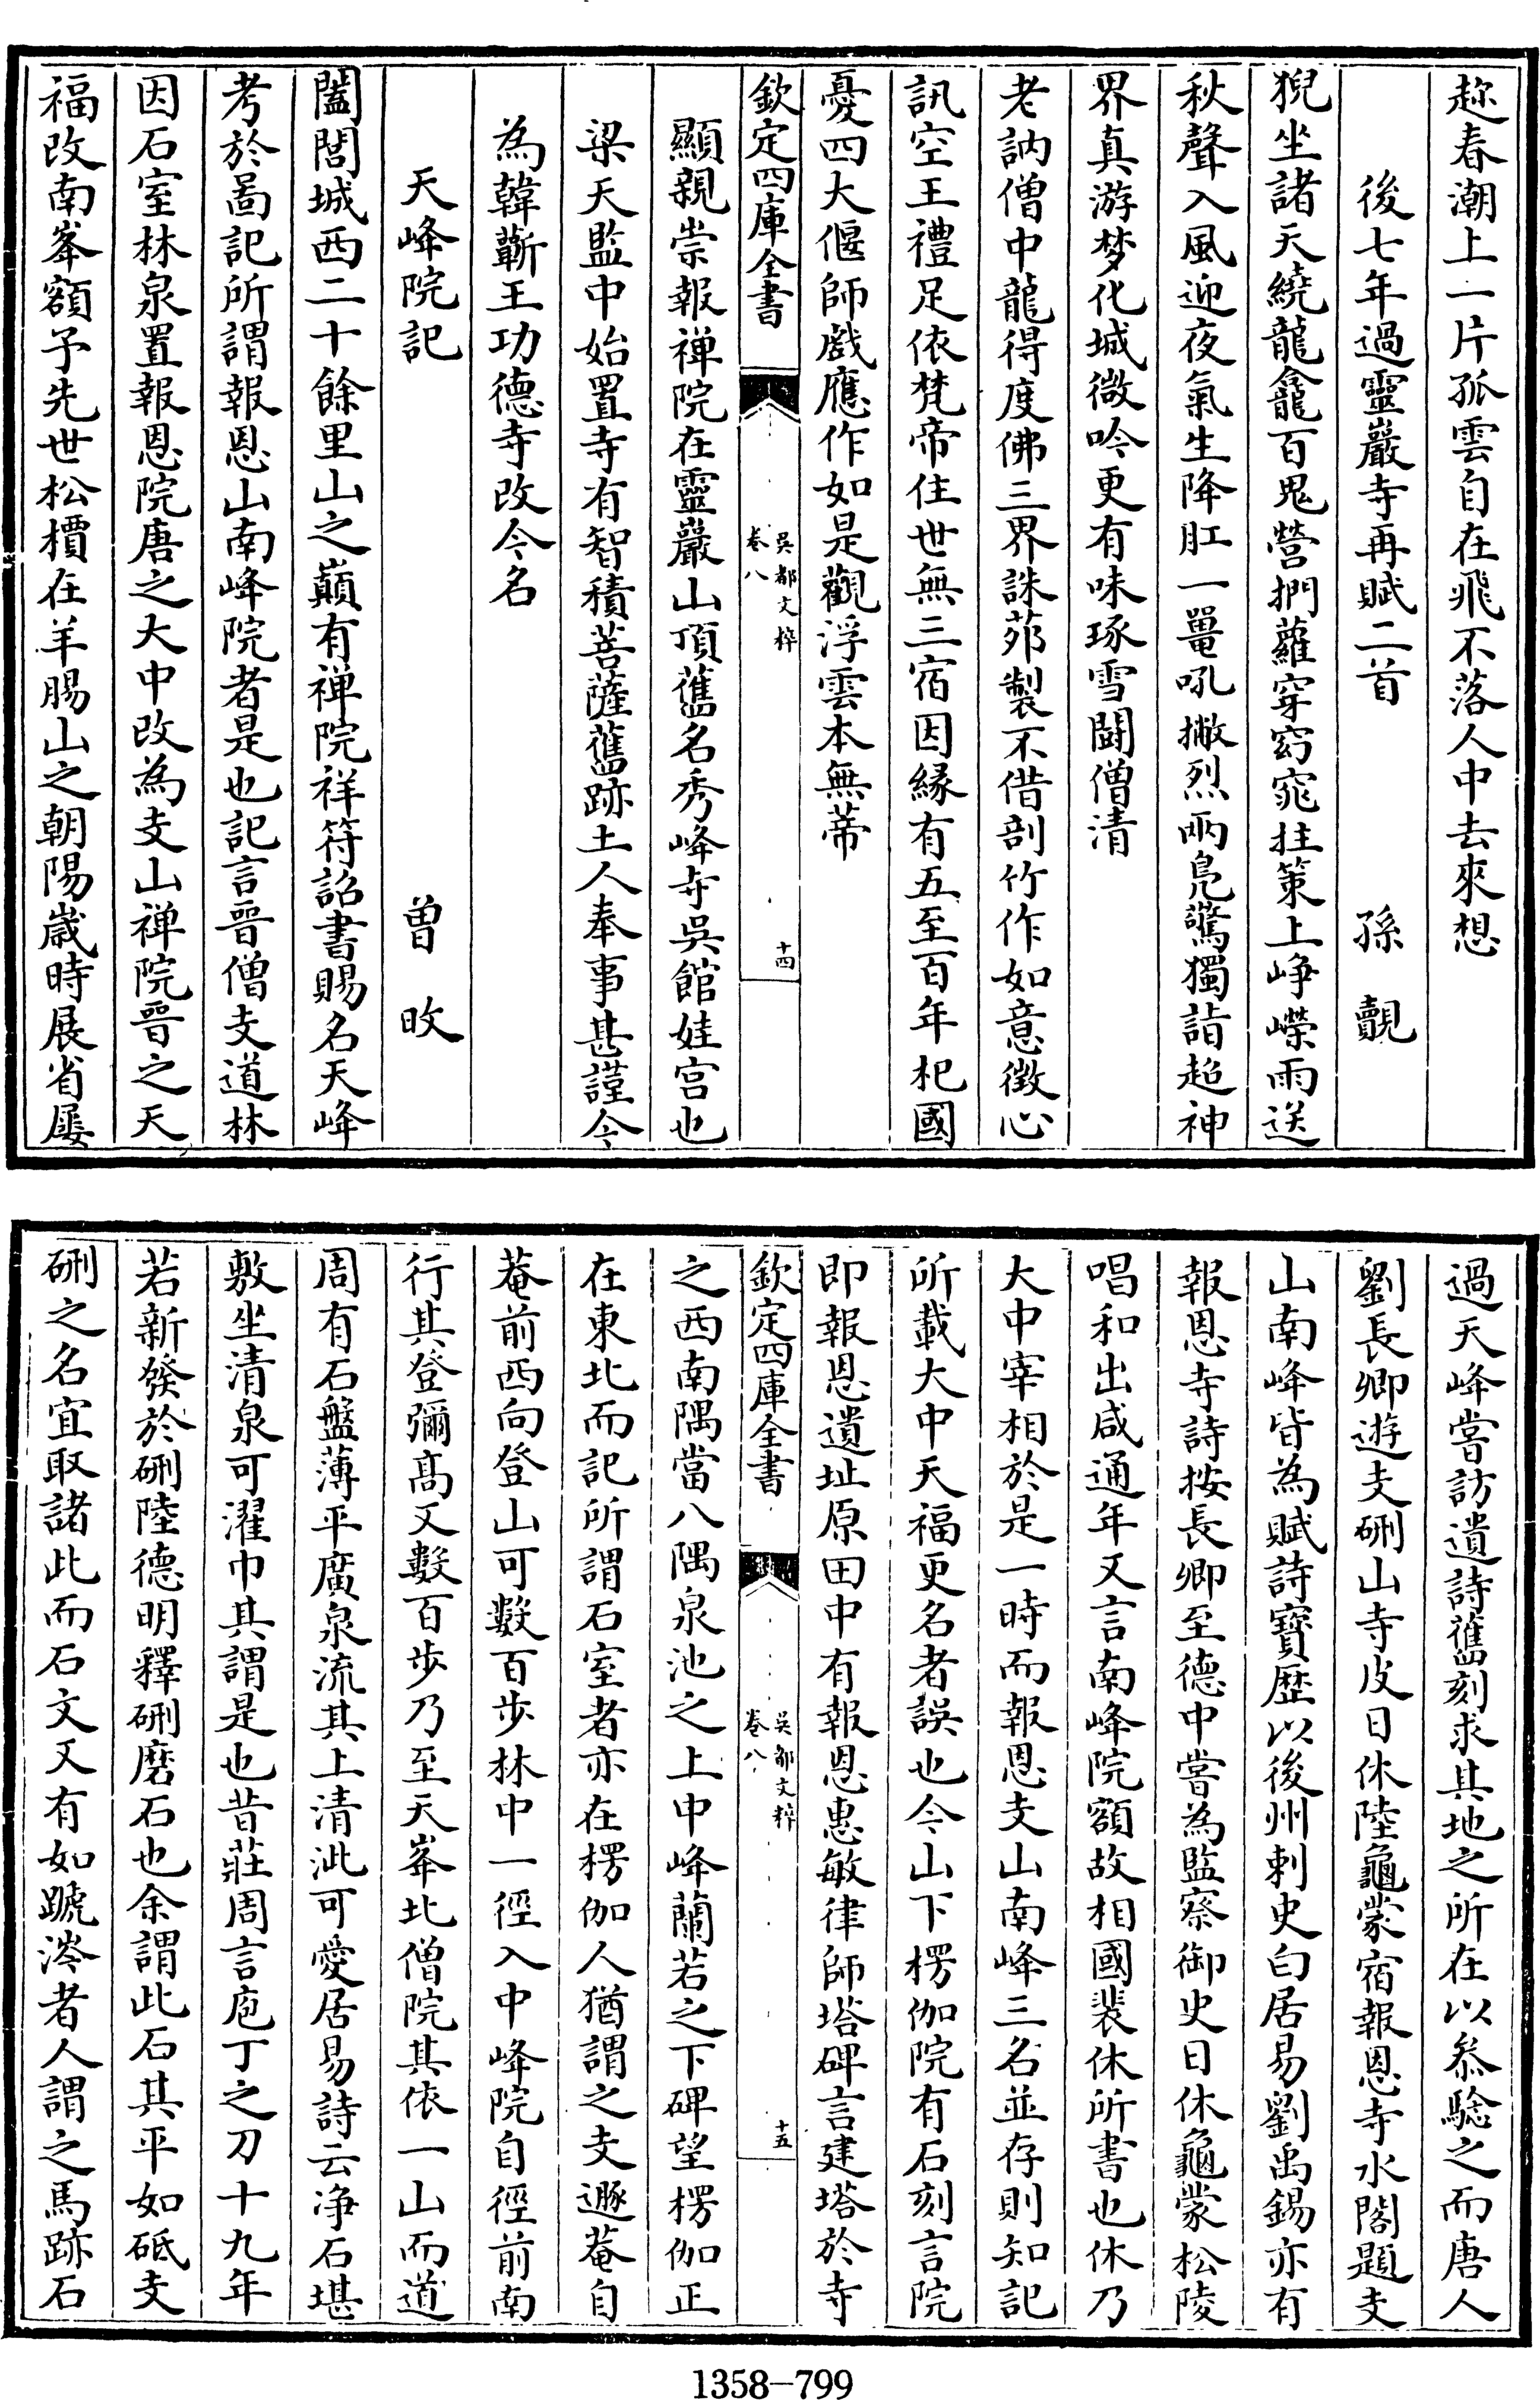 趂春潮上一片孤雲自在飛不落人中去來想
後七年過靈巖寺再賦二首　孫覿
猊坐諸天繞龍龕百鬼營捫蘿穿窈窕拄策上崢嶸雨送
秋聲入風迎夜氣生降肛一黽吼撇烈兩鳧驚獨詣超神
界真游梦化城微吟更有味琢雪鬪僧清
老訥僧中龍得度佛三界誅茆製不借剖竹作如意徴心
訊空王禮足依梵帝住世無三宿因緣有五至百年杞國
憂四大偃師戲應作如是觀浮雲本無蔕
欽定四庫全書
吳都文粹
卷八
十四
顯親崇報禅院在靈巖山頂舊名秀峰寺吳館娃宫也
梁天監中始置寺有智積菩薩舊跡土人奉事甚謹今
為韓蘄王功德寺改今名
天峰院記　曾旼
闔閭城西二十餘里山之巔有禅院祥符詔書賜名天峰
考於啚記所謂報恩山南峰院者是也記言晉僧支道林
因石室林泉置報恩院唐之大中改為支山禅院晉之天
福改南峯額予先世松檟在羊腸山之朝陽歲時展省屢
過天峰嘗訪遺詩舊刻求其地之所在以叅驗之而唐人
劉長卿遊支硎山寺皮日休陸龜蒙宿報恩寺水閣題支
山南峰皆為賦詩寶歴以後州刺史白居易劉禹錫亦有
報恩寺詩按長卿至德中嘗為監察御史日休龜蒙松陵
唱和出咸通年又言南峰院額故相國裴休所書也休乃
大中宰相於是一時而報恩支山南峰三名並存則知記
所載大中天福更名者誤也今山下楞伽院有石刻言院
即報恩遺址原田中有報恩惠敏律師塔碑言建塔於寺
欽定四庫全書
吳都文粹
卷八
十五
之西南隅當八隅泉池之上中峰蘭若之下碑望楞伽正
在東北而記所謂石室者亦在楞伽人猶謂之支遯菴自
菴前西向登山可數百步林中一徑入中峰院自徑前南
行其登彌髙又數百步乃至天峯北僧院其依一山而道
周有石盤薄平廣泉流其上清泚可愛居易詩云净石堪
敷坐清泉可濯巾其謂是也昔莊周言庖丁之刀十九年
若新發於硎陸德明釋硎磨石也余謂此石其平如砥支
硎之名宜取諸此而石文又有如蹏涔者人謂之馬跡石
1358-799